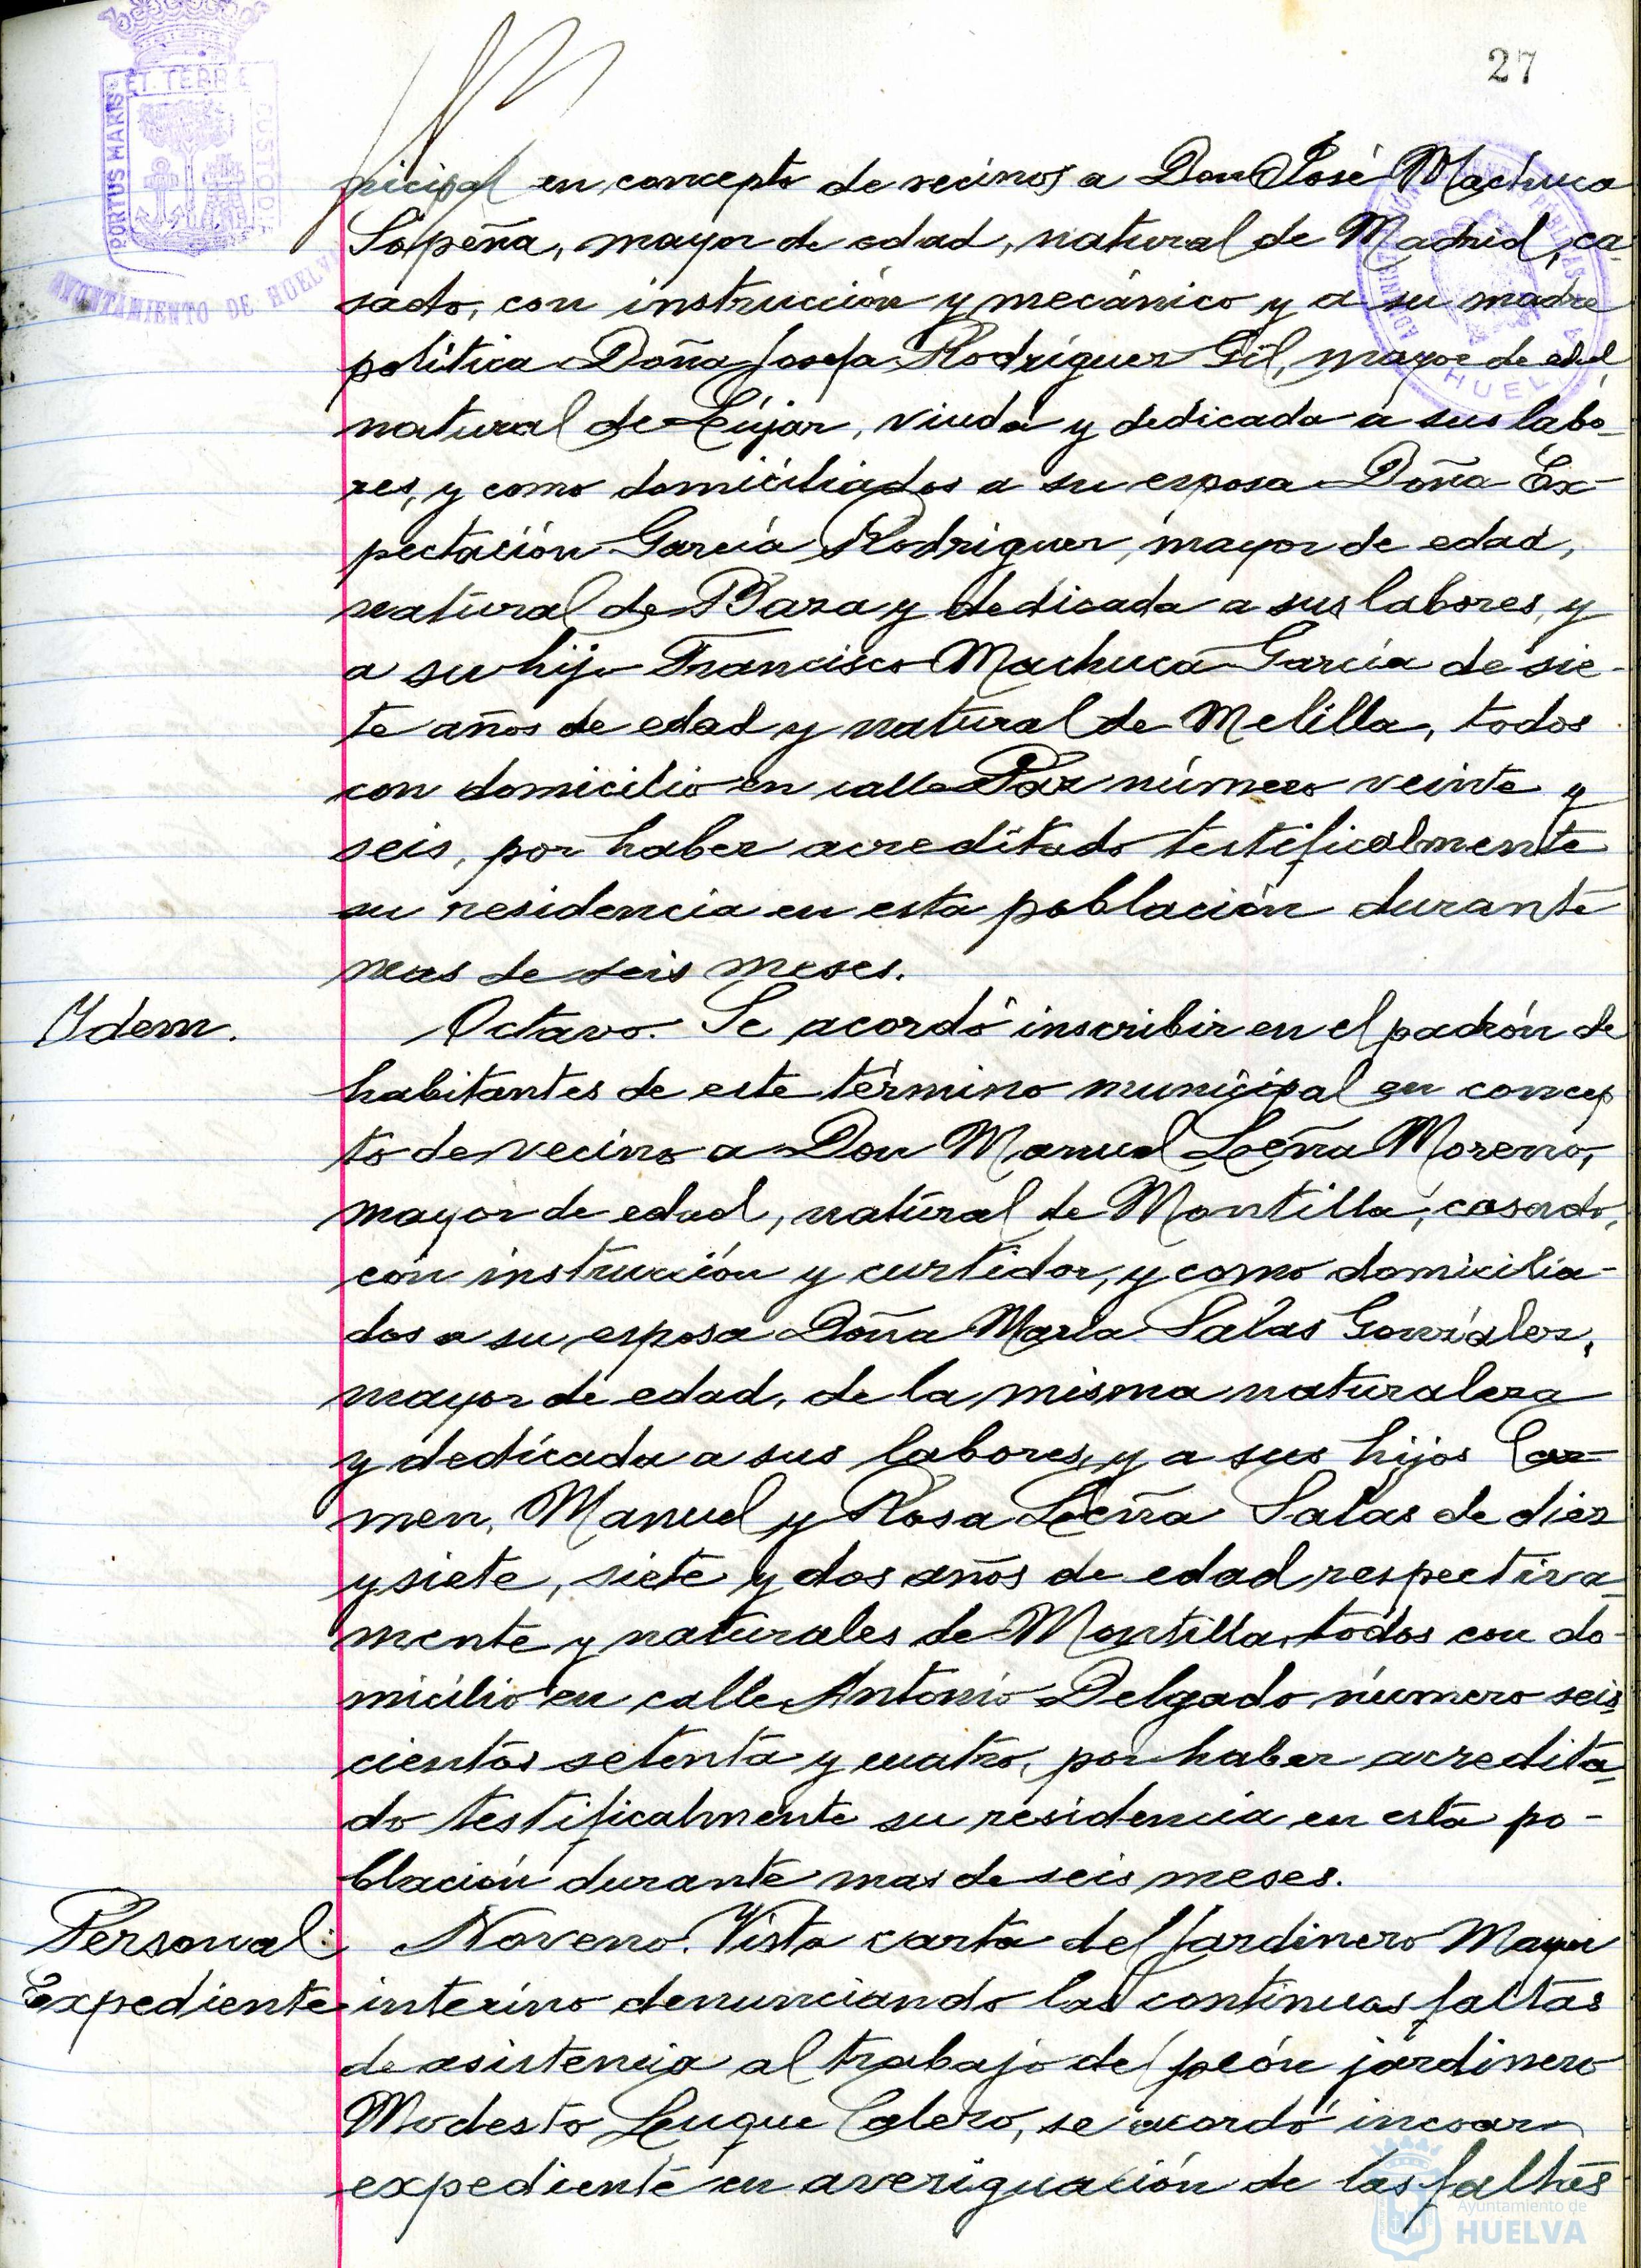 27
PORTUS MARIS ET TERRE CUSTODIA
AYUNTAMIENTO DE HUELVA
HUELVA
nicipal en concepto de vecinos a Don José Machuca
Sapeña, mayor de edad, natural de Madrid, ca-
sado, con instrucción y mecánico y a su madre
política Doña Josefa Rodríguez Gil, mayor de edad,
natural de Lújar, viuda y dedicada a sus labo-
res, y como domiciliados a su esposa Doña Ex-
pectación García Rodríguez, mayor de edad,
natural de Baza y dedicada a sus labores, y
a su hijo Francisco Machuca García de sie-
te años de edad y natural de Melilla, todos
con domicilio en calle Paz número veinte y
seis, por haber acreditado testificalmente
su residencia en esta población durante
mas de seis meses.
Ydem. Octavo. Se acordó inscribir en el padrón de
habitantes de este término municipal en concep
to de vecino a Don Manuel Leña Moreno,
mayor de edad, natural de Montilla, casado,
con instrucción y curtidor, y como domicilia-
dos a su esposa Doña María Salas González,
mayor de edad, de la misma naturaleza
y dedicada a sus labores, y a sus hijos Car-
men, Manuel y Rosa Leña Salas de diez
y siete, siete y dos años de edad respectiva-
mente y naturales de Montilla, todos con do-
micilio en calle Antonio Delgado número seis-
cientos setenta y cuatro, por haber acredita-
do testificalmente su residencia en esta po-
blación durante mas de seis meses.
Personal: Noveno. Vista carta del Jardinero Mayor
Expediente interino denunciando las continuas faltas
de asistencia al trabajo del peón jardinero
Modesto Luque Calero, se acordó incoar
expediente en averiguación de las faltas
Ayuntamiento de
HUELVA